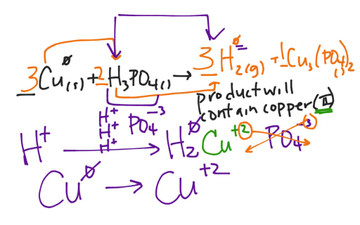 3Cu(s) + 2H3PO4( ) → 3H2(g) + 1Cu3(PO4)2( )
product will
contain copper (II)
H+ PO4 -3
H+
H+
H+ → H2 0 Cu+2 PO4 -3
Cu 0 → Cu+2